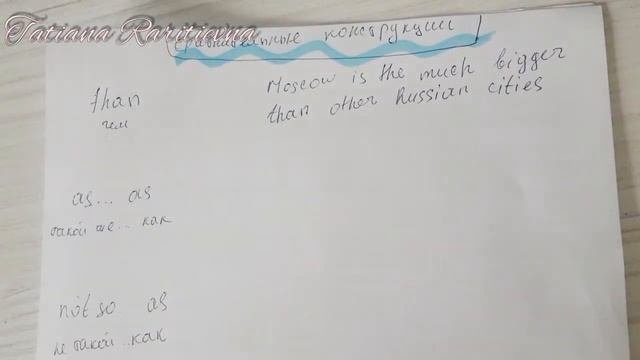 Tatiana Raritievna
сравнительные конструкции
than
чем
Moscow is the much bigger
than other Russian cities
as... as
такой же... как
not so as
не такой..как